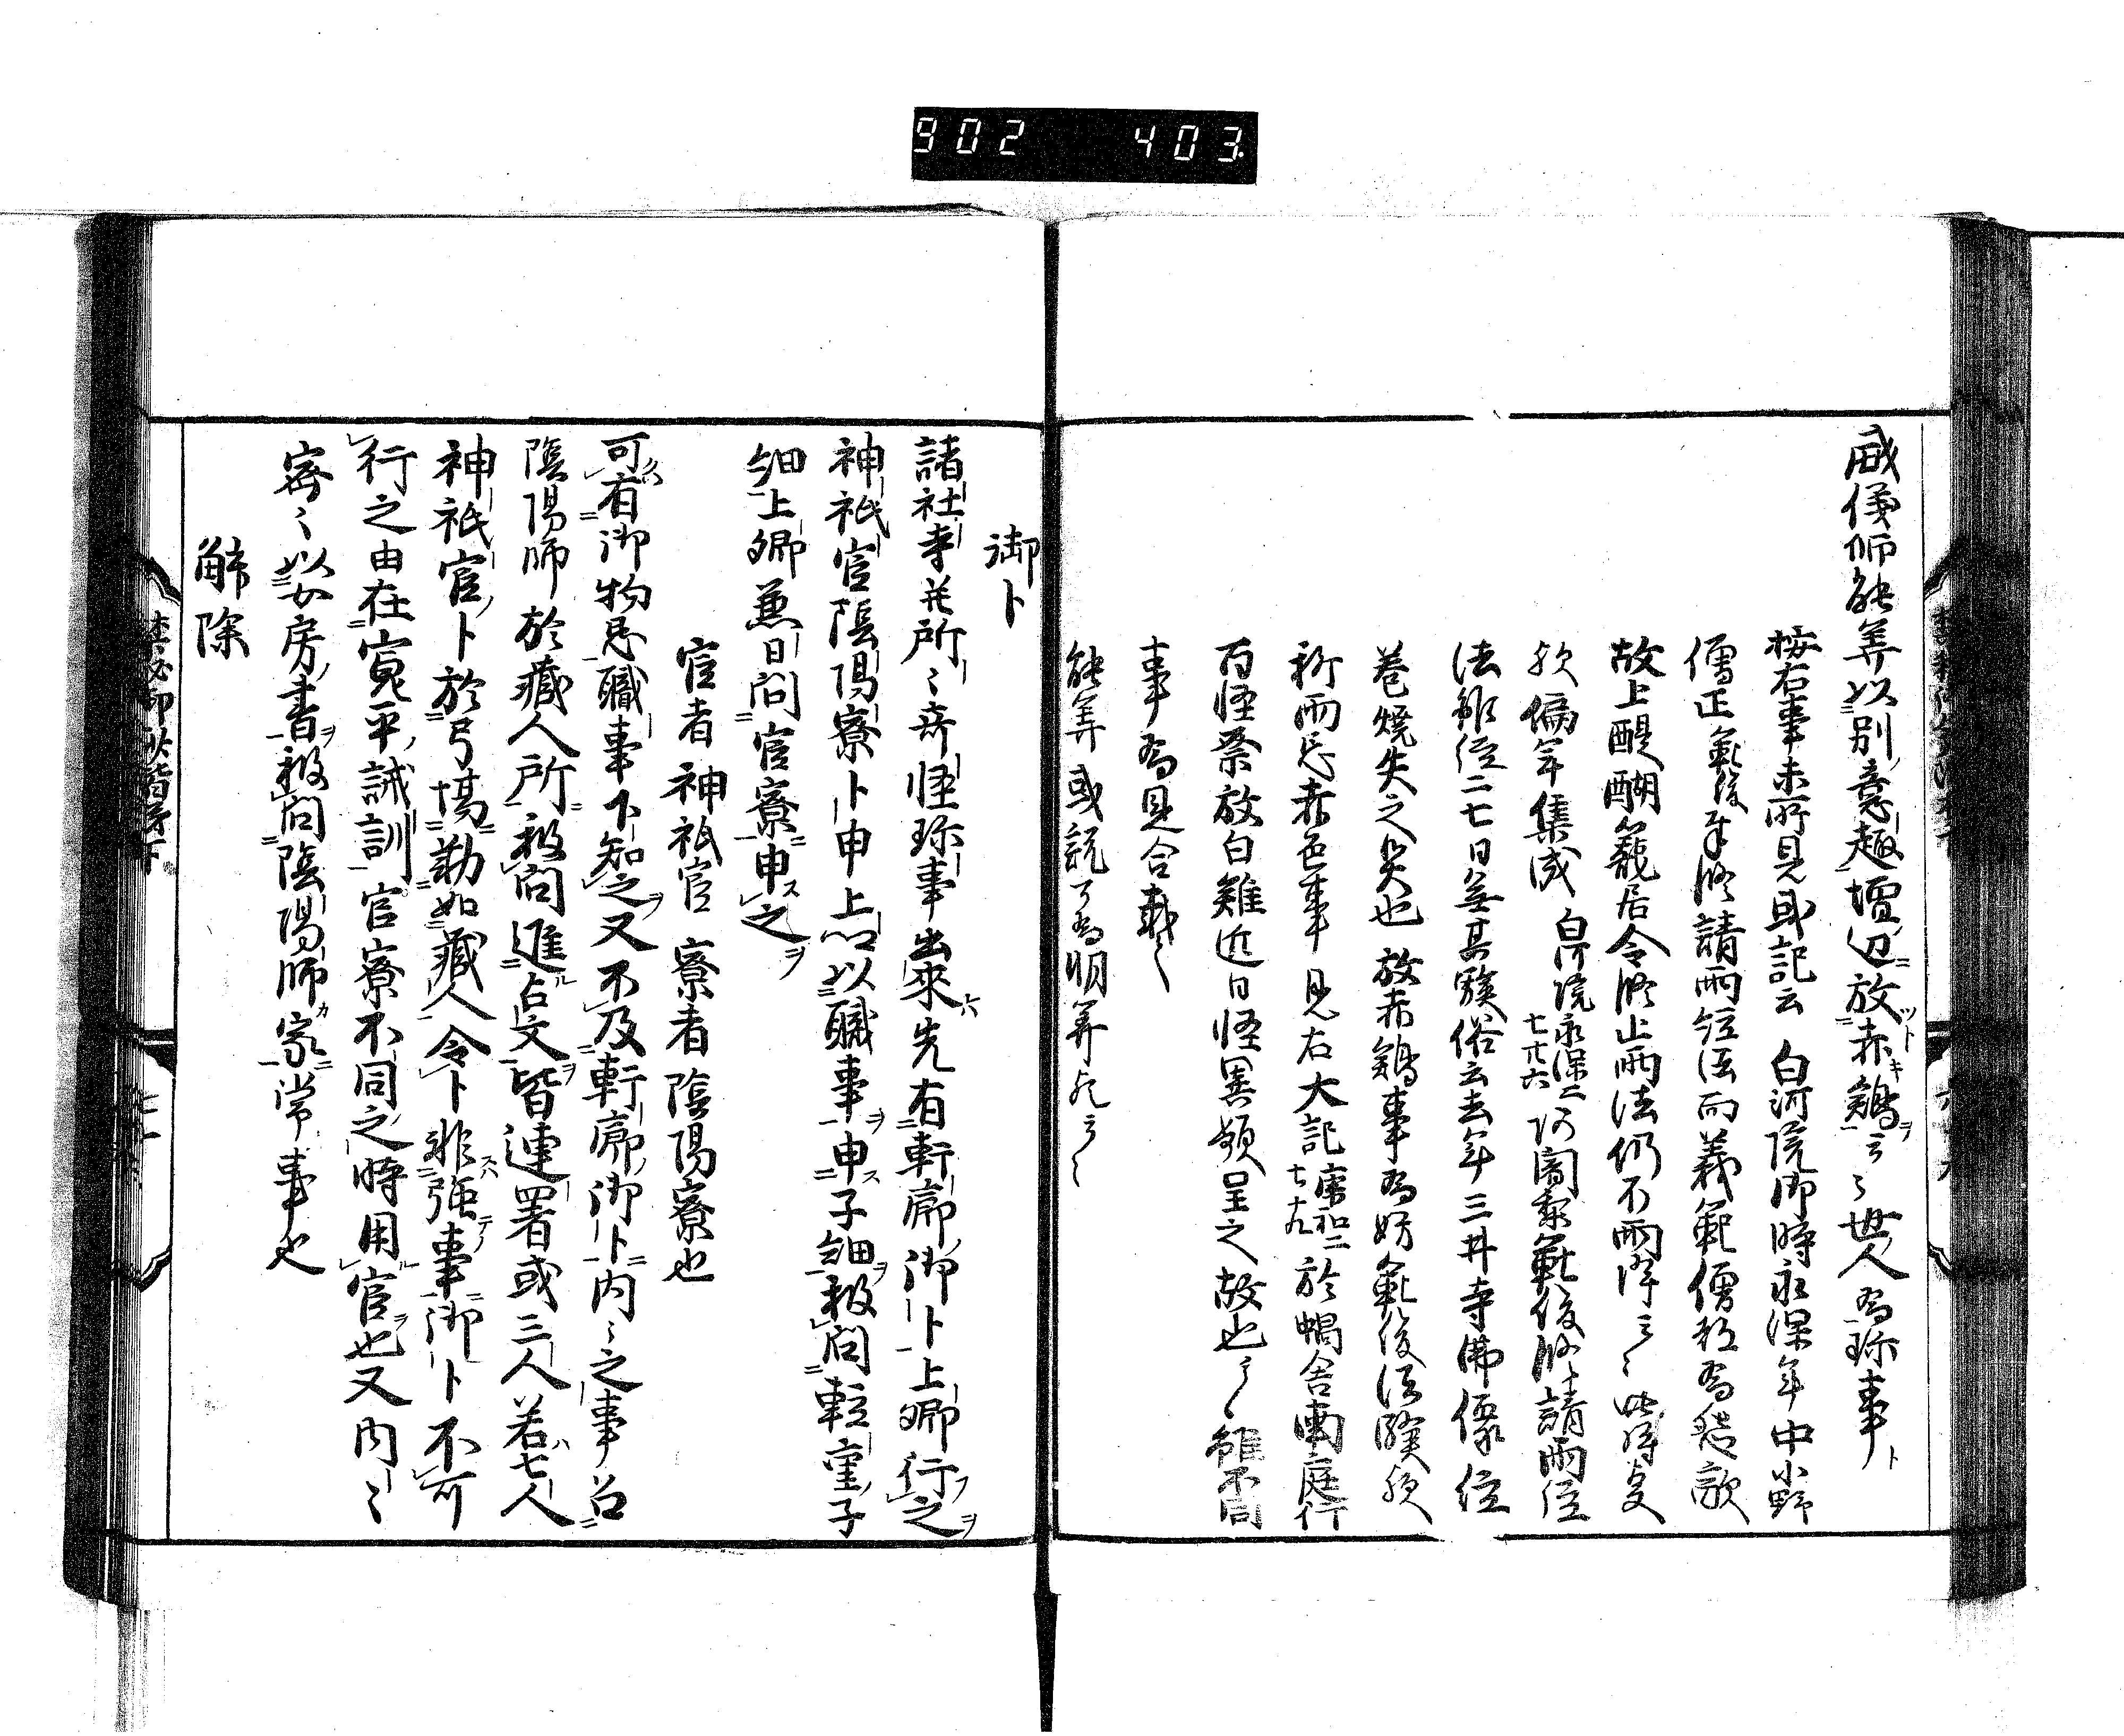 902 403
威儀師能筭以別意趣壇辺放赤鶏云々世人為珍事
按右事未所見或記云 白河院御時永保年中小野
僧正範俊奉修請雨経法而義範僧都為怨敵
故上醍醐籠居令修止雨法仍不雨降云々此時支
度偏年集成 白河院永保二七廿六阿闍梨範俊修請雨経
法雖経二七日無其験俗云去年三井寺佛像経
巻焼失之災也 放赤鶏事為妨範俊法験歟
祈雨忌赤色事見右大記康和二七十九於蝸舎南庭行
百怪祭放白雞近日怪異頻呈之故也云々雖不同
事為見合載之
能筭或説了為明筭歟云々
御卜
諸社寺并所々奇怪珍事出來先有軒廊御卜上卿行之
神祇官陰陽寮卜申上以職事申子細被問軽重子
細上卿兼日問官寮申之
官者神祇官 寮者陰陽寮也
可有御物忌職事下知之又不及軒廊御卜内々之事召
陰陽師於藏人所被問進占文皆連署或三人若七人
神祇官卜於弓場勤如藏人令卜非強事御卜不可
行之由在寛平誡訓官寮不同之時用官也又内々
密々以女房書被問陰陽師家常事也
解除
禁秘御抄階梯下